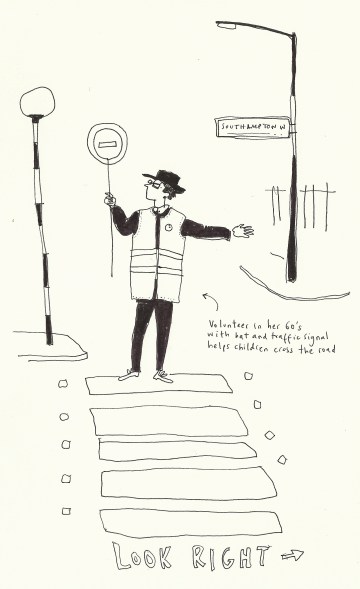 SOUTHAMPTON W
Volunteer in her 60's
with hat and traffic signal
helps children cross the road
LOOK RIGHT